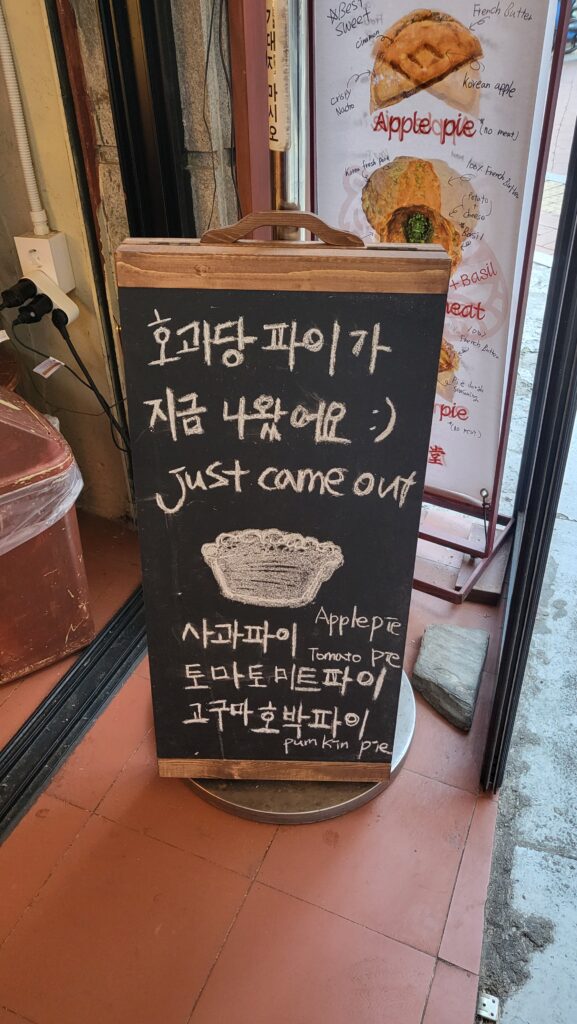 호과당 파이가
지금 나왔어요 :)
just came out
사과파이 Apple pie
토마토미트파이 Tomato pie
고구마호박파이
pumkin pie
기대지 마시오
☆Best
sweet
French Butter
cinnamon
Korean apple
crispy
Applepie (no meat)
Korea fresh pork
100% French Butter
potato
+
cheese
+
Basil
+Basil
eat
French Butter
pie
(no meat)
堂